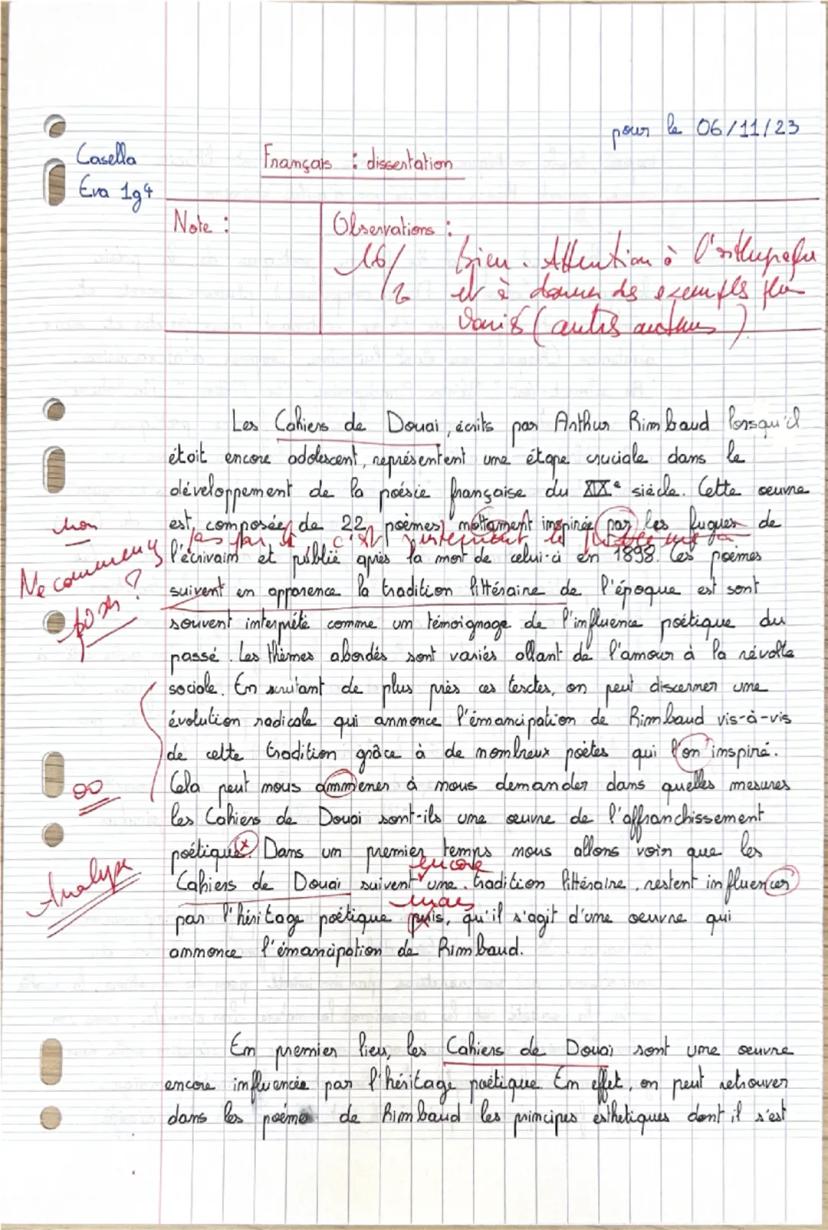 pour le 06/11/23
Casella
Eva 1g4
Français : dissertation
Note :
Observations :
16/2
bien. Attention à l'orthographe
et à donner des exemples plus
variés (autres auteurs)
Les Cahiers de Douai, écrits par Arthur Rimbaud lorsqu'il
étoit encore adolescent, représentent une étape cruciale dans le
développement de la poésie française du XIXe siècle. Cette oeuvre
est, composée, de 22 poèmes, nottamment inspirée par les fugues de
non
pas par là c'est
l'écrivaim et publié après la mort de celui-ci en 1898. Ces poèmes
Ne commencez
pas ?
suivent en apparence la tradition littéraire de l'époque est sont
souvent interprété comme un témoignage de l'influence poétique du
passé. Les thèmes abordés sont variés allant de l'amour à la révolte
sociale. En scrutant de plus près ces textes, on peut discerner une
évolution radicale qui annonce l'émancipation de Rimbaud vis-à-vis
de cette tradition grâce à de nombreux poètes qui l'on inspiré.
Cela peut nous ammener à nous demander dans quelles mesures
les Cahiers de Douai sont-ils une oeuvre de l'affranchissement
poétique. Dans un premier temps nous allons voir que les
Analyse
encore
Cahiers de Douai suivent une tradition littéraire, restent influencer
mais
par l'héritage poétique puis, qu'il s'agit d'une oeuvre qui
annonce l'émancipation de Rimbaud.
En premier lieu, les Cahiers de Douai sont une oeuvre
encore influencée par l'héritage poétique. En effet, on peut retrouver
dans les poème de Rimbaud les principes esthetiques dont il s'est